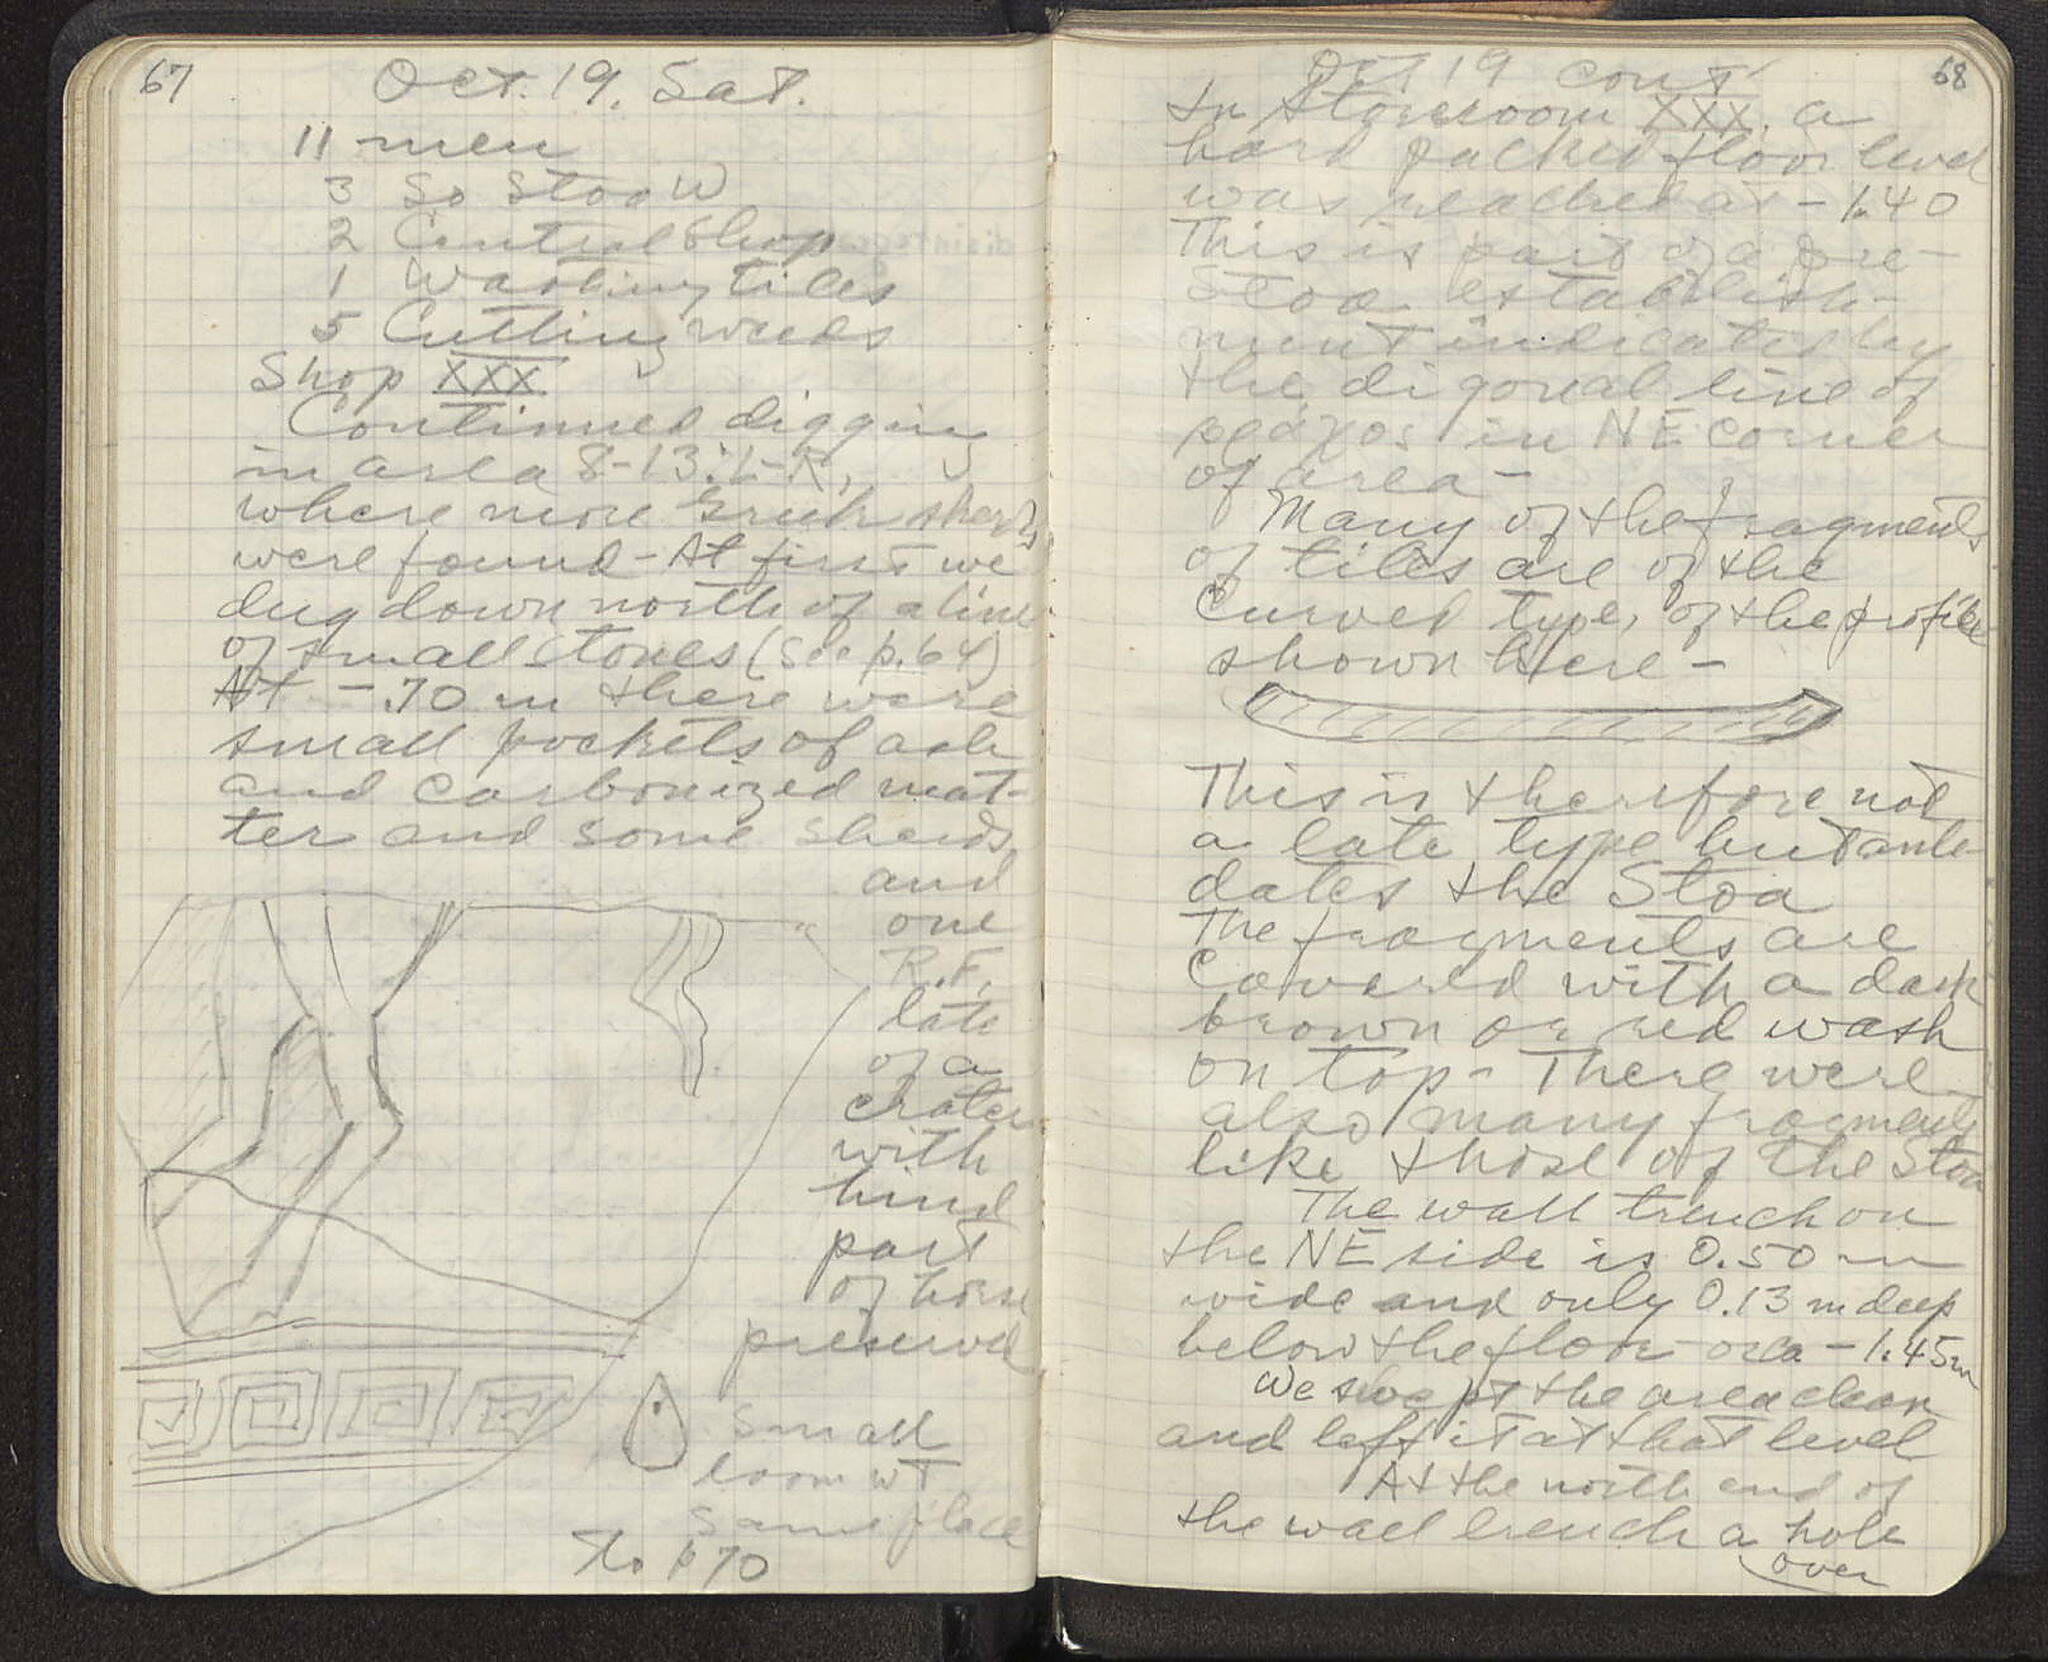 67
Oct. 19, Sat.
11 men
3 So Stoa W
2 Central Shop
1 Washing tiles
5 Cutting weeds
Shop XXX
Continued digging
in area 8-13: L-R,
where more Greek sherds
were found - At first we
dug down north of a line
of small stones (See p. 64)
At -.70 m there were
small pockets of ash
and carbonized mat-
ter and some sherds
and
one
R.F.
late
of a
crater
with
hind
part
of horse
preserved
small
loom wt
same place
To p 70
68
Oct 19 cont
In Storeroom XXX, a
hard packed floor level
was reached at - 1.40
This is part of a pre-
Stoa establish-
ment indicated by
the digonal line of
in NE corner
of area -
Many of the fragments
of tiles are of the
Curved type, of the profile
shown here -
This is therefore not
a late type but ante-
dates the Stoa
The fragments are
Covered with a dark
brown or red wash
on top - There were
also many fragments
like those of the Stoa
The wall trench on
the NE side is 0.50 m
wide and only 0.13 m deep
below the floor - 1.45m
We swept the area clean
and left it at that level
At the north end of
the wall trench a hole
over